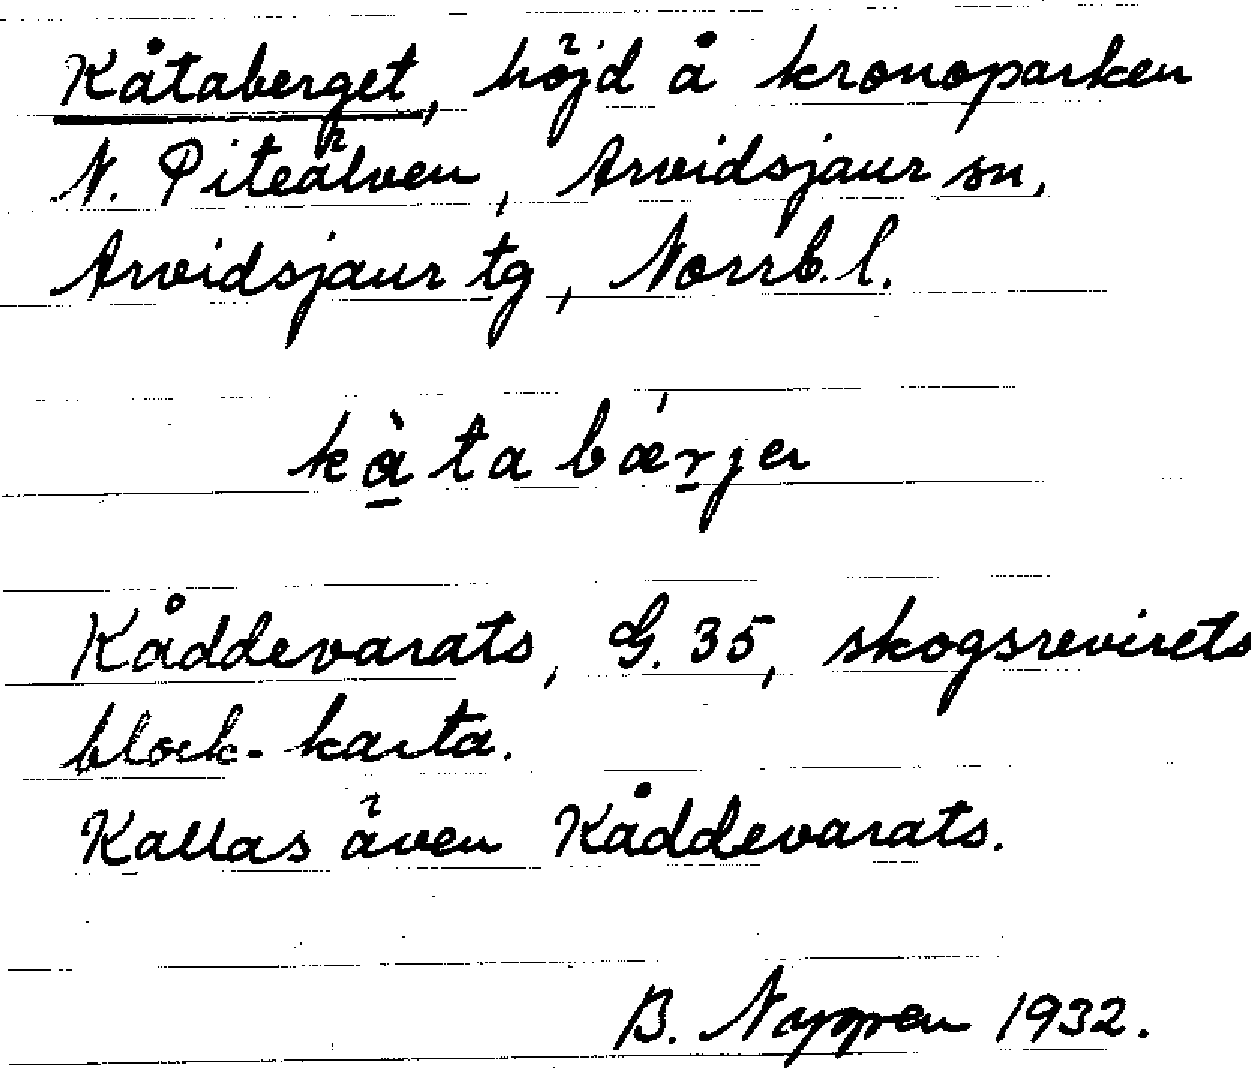 Kåtaberget, höjd å kronoparken
N. Piteälven, Arvidsjaur sn,
Arvidsjaur tg, Norrb. l.
kàtabǽrjen
Kåddevarats, G. 35, skogsrevirets
block-karta.
Kallas även Kåddevarats.
B. Nappen 1932.